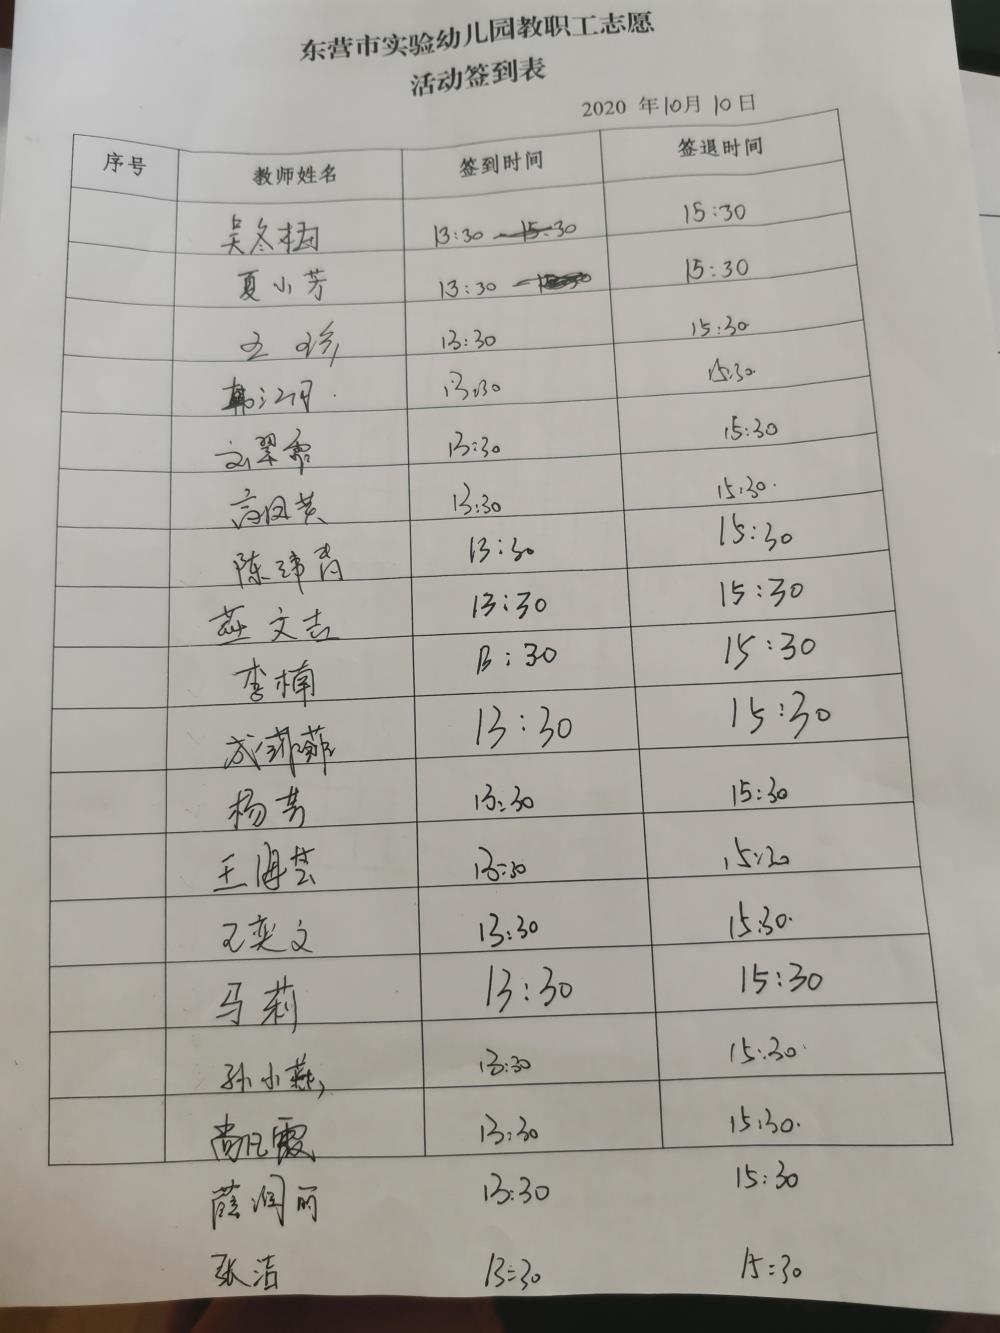 东营市实验幼儿园教职工志愿
活动签到表
2020 年10月10日
序号 教师姓名 签到时间 签退时间
吴冬梅 13:30 15:30
夏小芳 13:30 15:30
王珍 13:30 15:30
韩江月 13:30 15:30
刘翠霜 13:30 15:30
高凤英 13:30 15:30
陈玮青 13:30 15:30
燕文吉 13:30 15:30
李楠 13:30 15:30
成 13:30 15:30
杨芳 13:30 15:30
王海芸 13:30 15:30
王奕文 13:30 15:30
马莉 13:30 15:30
孙小燕 13:30 15:30
尚凡霞 13:30 15:30
薛润丽 13:30 15:30
张洁 13:30 15:30